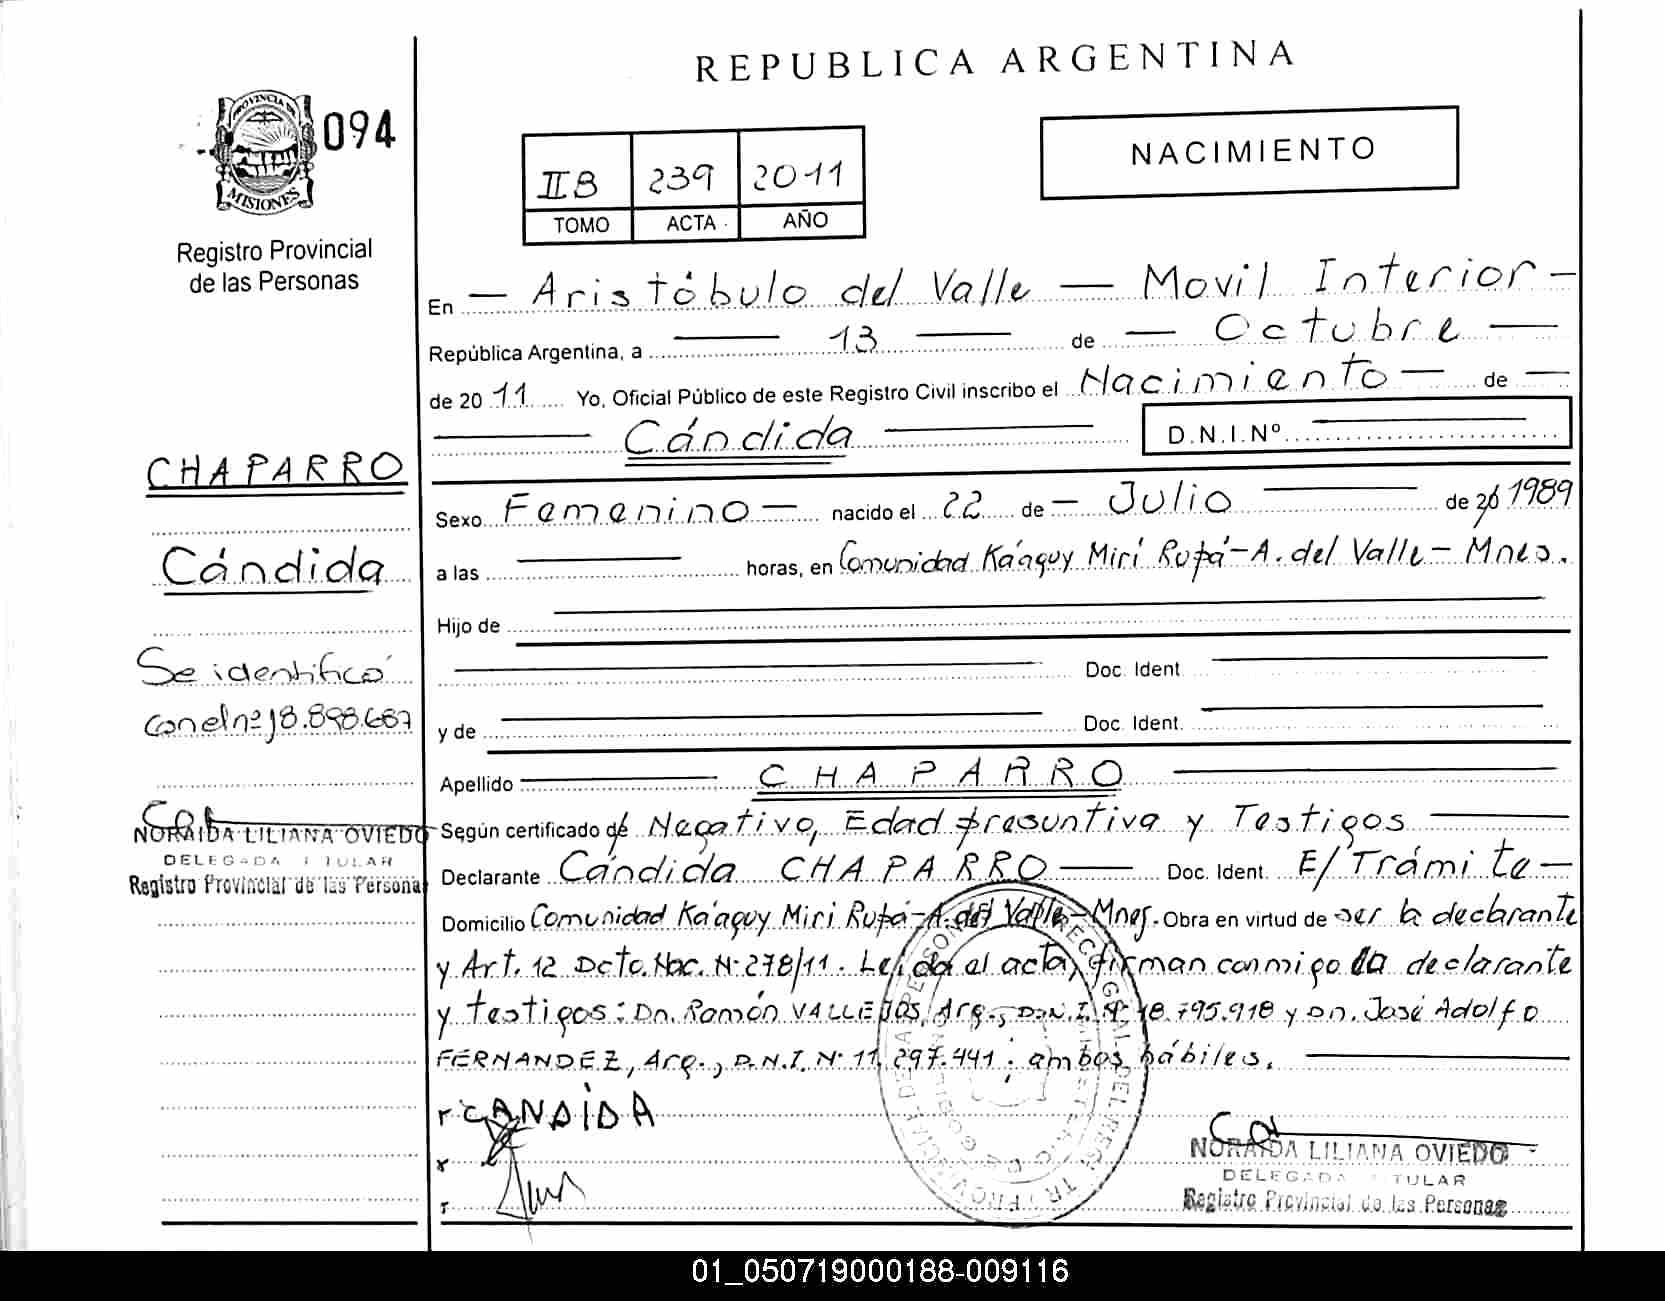 REPUBLICA ARGENTINA
PROVINCIA DE
MISIONES
094
Registro Provincial
de las Personas
IIB 239 2011
TOMO ACTA AÑO
NACIMIENTO
En — Aristóbulo del Valle — Movil Interior —
República Argentina, a — 13 — de — Octubre —
de 2011 Yo, Oficial Público de este Registro Civil inscribo el Nacimiento — de —
— Cándida — D.N.I.Nº —
Sexo Femenino — nacido el 22 de — Julio — de 20 1989
a las — horas, en Comunidad Ka'aguy Mirí Rupá - A. del Valle - Mnes.
Hijo de
Doc. Ident.
y de Doc. Ident.
Apellido — CHAPARRO —
Según certificado de Negativo, Edad presuntiva y Testigos —
Declarante Cándida CHAPARRO — Doc. Ident. E/Trámite —
Domicilio Comunidad Ka'aguy Miri Rupá - A. del Valle - Mnes. Obra en virtud de ser la declarante
y Art. 12 Dcto. Nac. Nº 278/11. Leída el acta, firman conmigo la declarante
y testigos: Dn. Ramón VALLEJOS, Arg., D.N.I. Nº 18.795.918 y Dn. José Adolfo
FERNANDEZ, Arg., D.N.I. Nº 11.297.441. ambos hábiles. —
CANDIDA
NORAIDA LILIANA OVIEDO
DELEGADA TITULAR
Registro Provincial de las Personas
CHAPARRO
Cándida
Se identificó
con el nº 18.898.687
NORAIDA LILIANA OVIEDO
DELEGADA TITULAR
Registro Provincial de las Persona
01_050719000188-009116